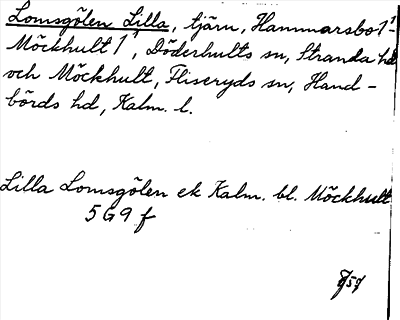 Lomsgölen Lilla, tjärn, Hammarsbo 1¹-
Möckhult 1¹, Döderhults sn, Stranda hd
och Möckhult, Fliseryds sn, Hand-
börds hd, Kalm. l.
Lilla Lomsgölen ek Kalm. bl. Möckhult
5G9f